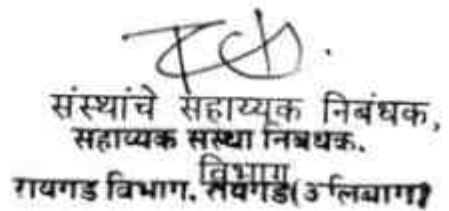 संस्थांचे सहाय्यक निबंधक,
सहाय्यक संस्था निबंधक.
विभाग
रायगड विभाग. रायगड(अलिबाग)